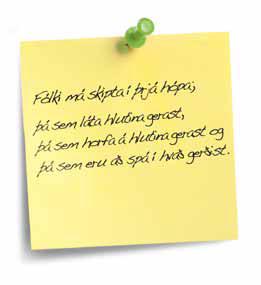 Fólki má skipta í þrjá hópa;
þá sem láta hlutina gerast,
þá sem horfa á hlutina gerast og
þá sem eru að spá í hvað gerðist.